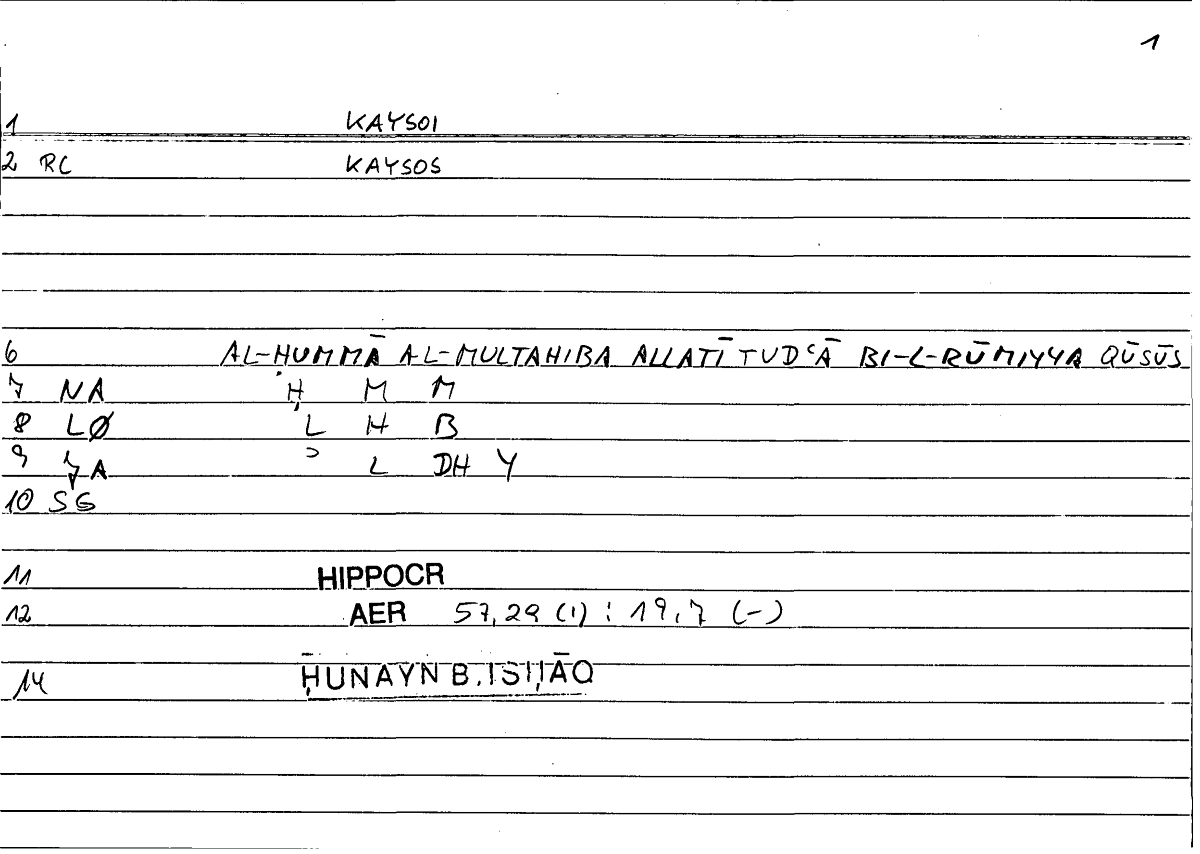 1
1 KAYSOI
2 RC KAYSOS
6 AL-ḤUMMĀ AL-MULTAHIBA ALLATĪ TUDʿĀ BI-L-RŪMIYYA QŪSŪS
7 NA Ḥ M M
8 LØ L H B
9 JA ʾ L DH Y
10 SG
11 HIPPOCR
12 AER 57,29 (1) : 19,7 (-)
14 ḤUNAYN B. ISḤĀQ